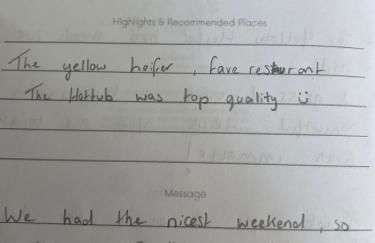 Highlights & Recommended Places
The yellow heifer, fave restaurant
The Hottub was top quality ☺
Message
We had the nicest weekend, so